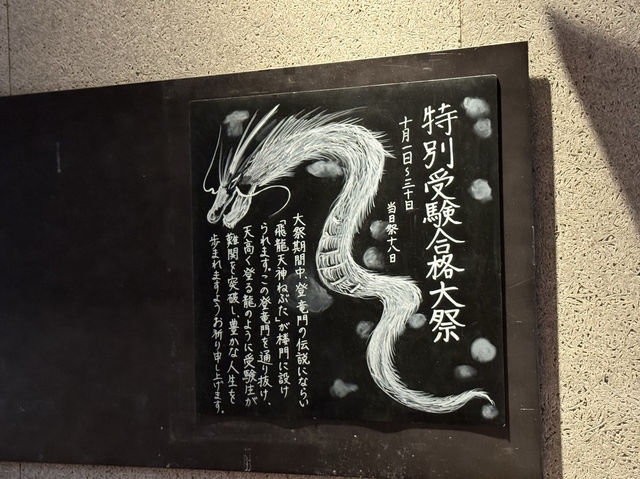 特別受験合格大祭
十月一日～三十日
当日祭十八日
大祭期間中、登竜門の伝説にならい
「飛龍天神ねぶた」が楼門に設け
られます。この登竜門を通り抜け、
天高く登る龍のように受験生が
難関を突破し、豊かな人生を
歩まれますようお祈り申し上げます。